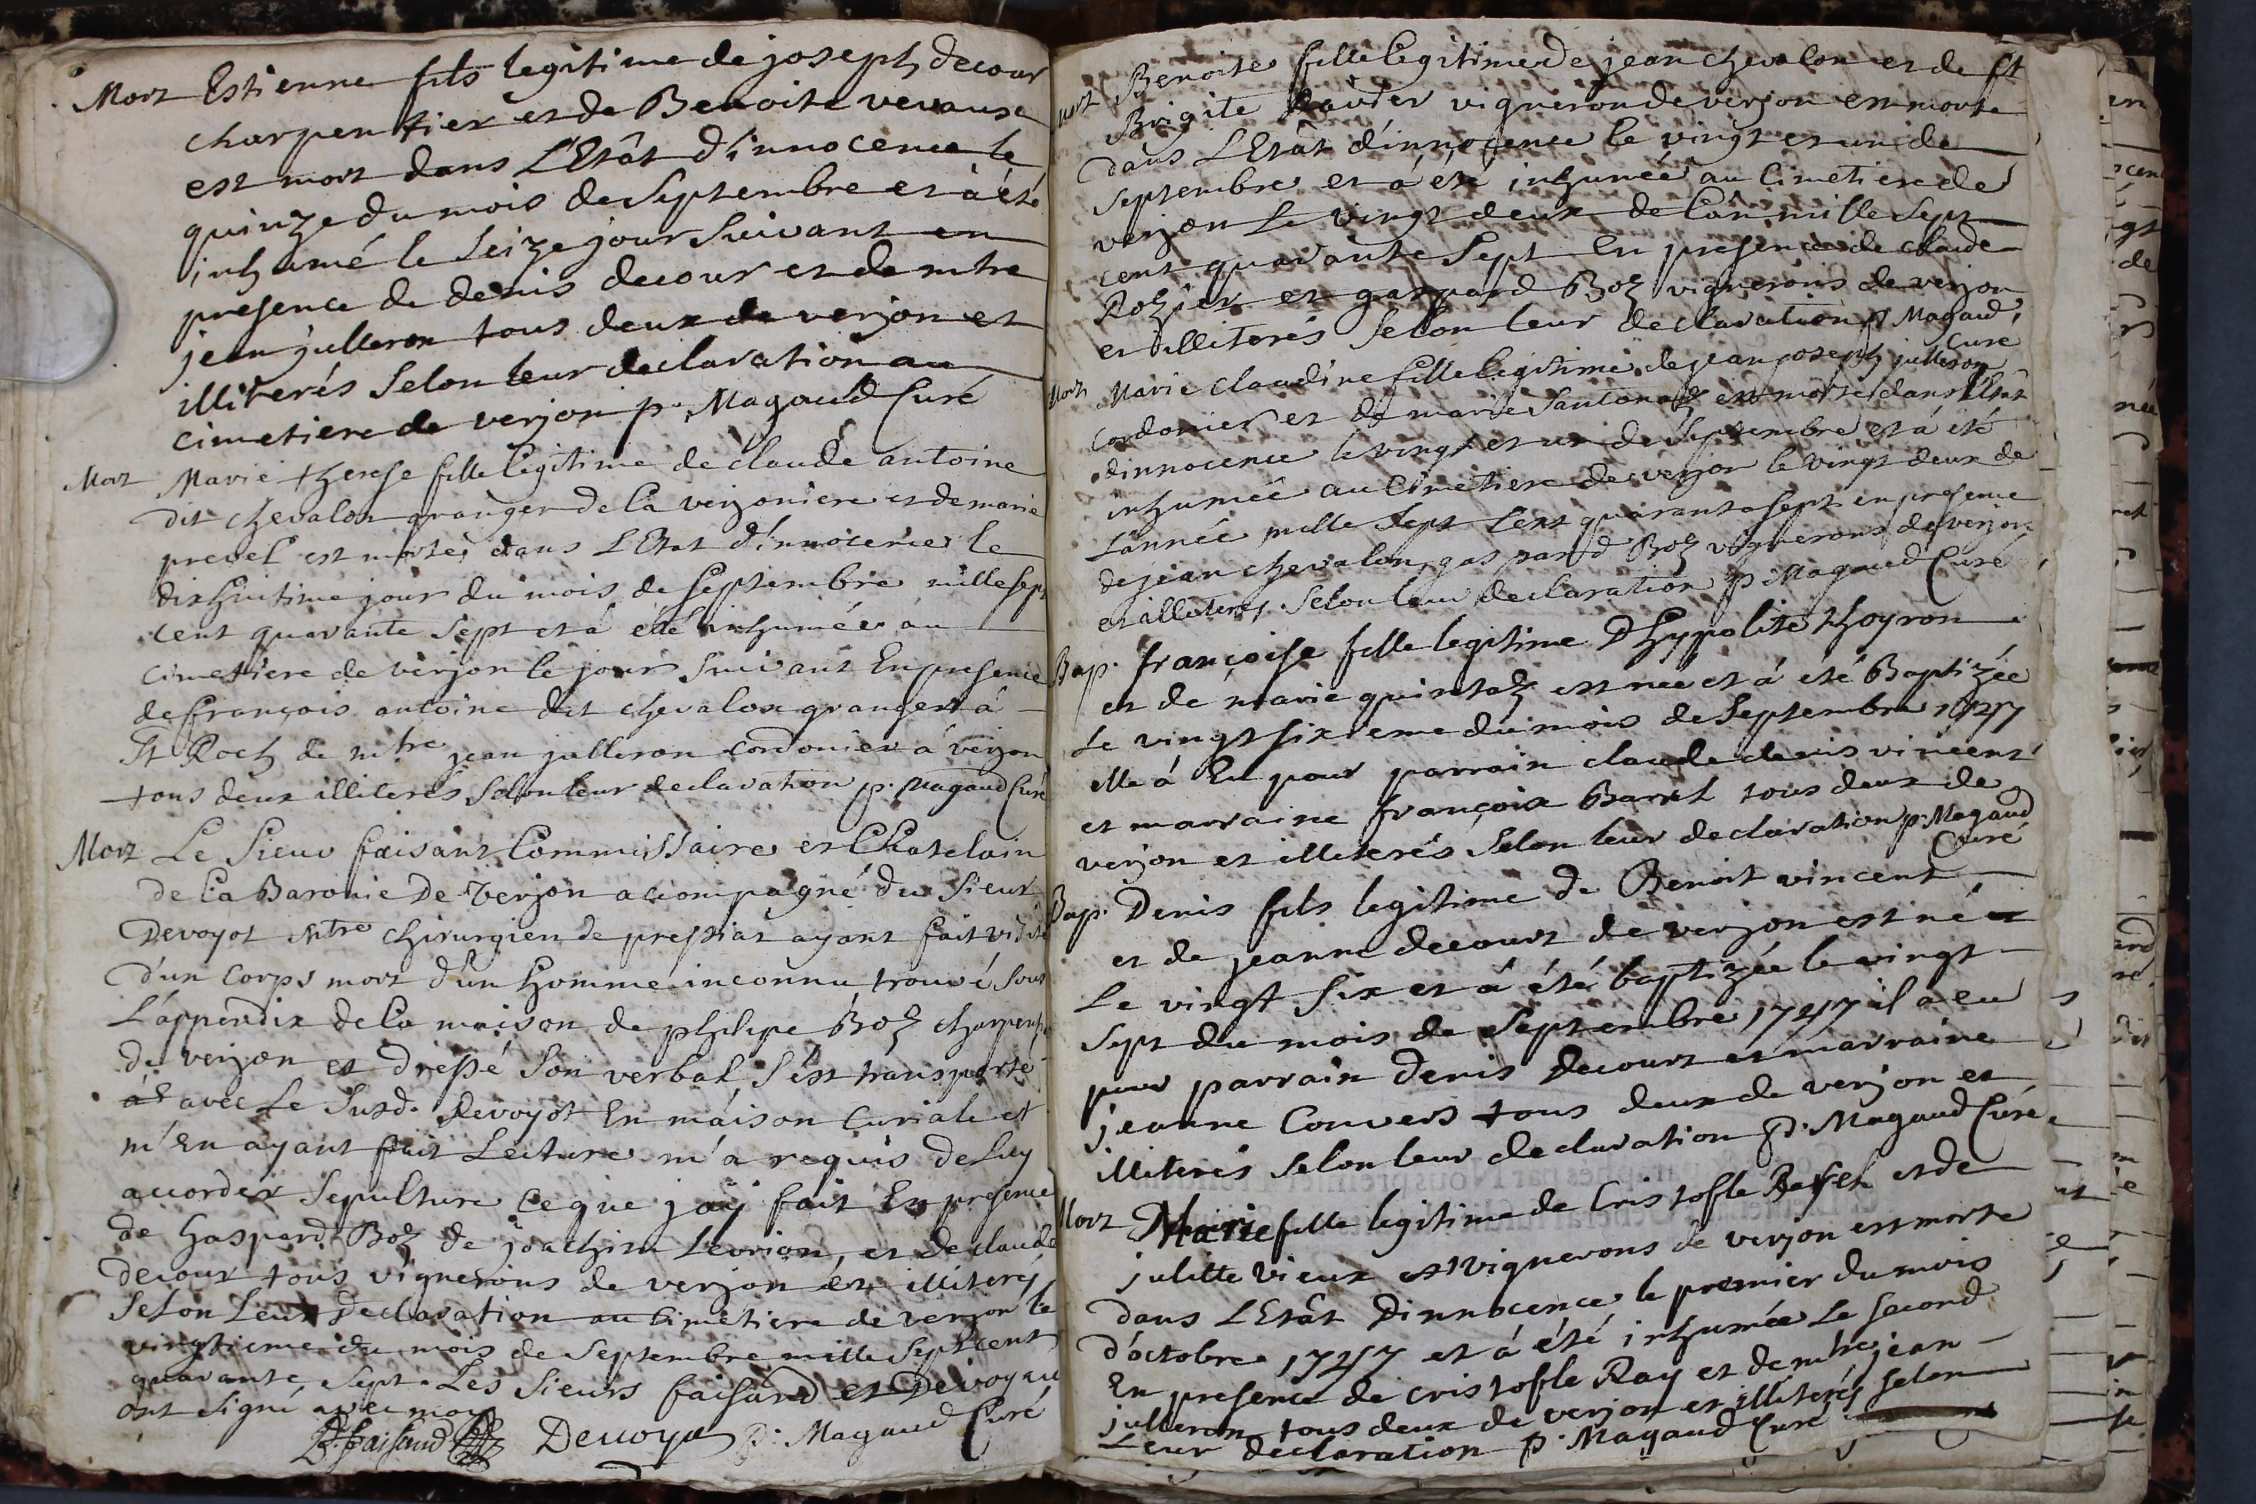 Mort Estienne fils legitime de joseph decour
charpentier et de Benoite vevause
est mort dans L'Etât d'innocence le
quinze du mois de Septembre et à été
inhumé le Seize jour Suivant en
presence de denis decour et de mtre
jean julleron tous deux de verjon et
illiterés Selon leur declaration au
cimetiere de verjon p. Magaud Curé
Mort Marie therese fille legitime de claude antoine
dit chevalon granger de la verjoniere et de marie
prevel est morte dans L'Etat d'innocence le
dixhuitime jour du mois de Septembre mille sept
cent quarante Sept et à été inhumée au
cimetiere de verjon le jour Suivant En presence
de françois antoine dit chevalon granger à
St Roch de mtre jean julleron cordonier à verjon
tous deux illiterés Selon leur declaration p. Magaud Curé
Mort Le Sieur faisant Commissaire et Chatelain
de la Baronie De Verjon accompagné du Sieur
Devoyot mtre chirurgien de pressiat ayant fait visite
d'un Corps mort d'un homme inconnu trouvé Sous
L'appendix de la maison de philipe Boz charpent
de verjon et dressé Son verbal S'ést transporté
avec Le Susd. Devoyot En maison Curiale et
m'En ayant fait Lecture m'a requis de Luy
accorder Sepulture ce que j'aÿ fait En presence
de Gaspard Boz de joachim Levrion, et de claude
decour tous vignerons de verjon et illiterés
Selon Leur declaration au cimetiere de verjon le
vingtieme du mois de Septembre mille Sept cent
quarante Sept. Les Sieurs faisand et Devoyau
ont signé avec moy
faisand Devoya p. Magaud Curé
Mort Benoite fille legitime de jean chevalon et de
Brigite vigneron de verjon est morte
dans L'Etât d'innocence le vingt et un de
Septembre et à été inhumée au Cimetiere de
verjon Le vingt deux de L'an mille Sept
cent quarante Sept En presence de claude
Rozier et gaspard Boz vignerons de verjon
et illiterés Selon leur declaration p Magaud,
Curé
Mort Marie claudine fille legitime de jean joseph julleron
cordonier et de marie Santonaz est morte dans l'Etat
d'innocence le vingt et un de Septembre et à été
inhumée au Cimetiere de verjon le vingt deux de
L'année mille Sept Cent quarante sept en presence
de jean chevalon, gaspard Boz vignerons de verjon
et illiterés Selon leur declaration p Magaud Curé
Bap. françoise fille legitime D'hypolite thoyron
et de marie quintaz est née et à été Baptizée
Le vingt sixieme du mois de Septembre 1747
elle à Eu pour parrain claude denis vincent
et marraine françoise Barrel tous deux de
verjon et illiterés Selon leur declaration p. Magaud
Curé
Bap. Denis fils legitime de Benoit vincent
et de jeanne decourt de verjon est né
Le vingt Six et à été baptizée le vingt
Sept du mois de Septembre 1747 il a eu
pour parrain Denis Decourt et marraine
jeanne Convers tous deux de verjon et
illiterés Selon leur declaration p. Magaud Curé
Mort Marie fille legitime de Cristofle et de
julitte Vieux vignerons de verjon est morte
dans L'Etât D'innocence le premier du mois
d'octobre 1747 et à été inhumée Le Second
En presence de cristofle Ray et de mtre jean
julleron tous deux de verjon et illiterés Selon
Leur declaration p. Magaud Curé